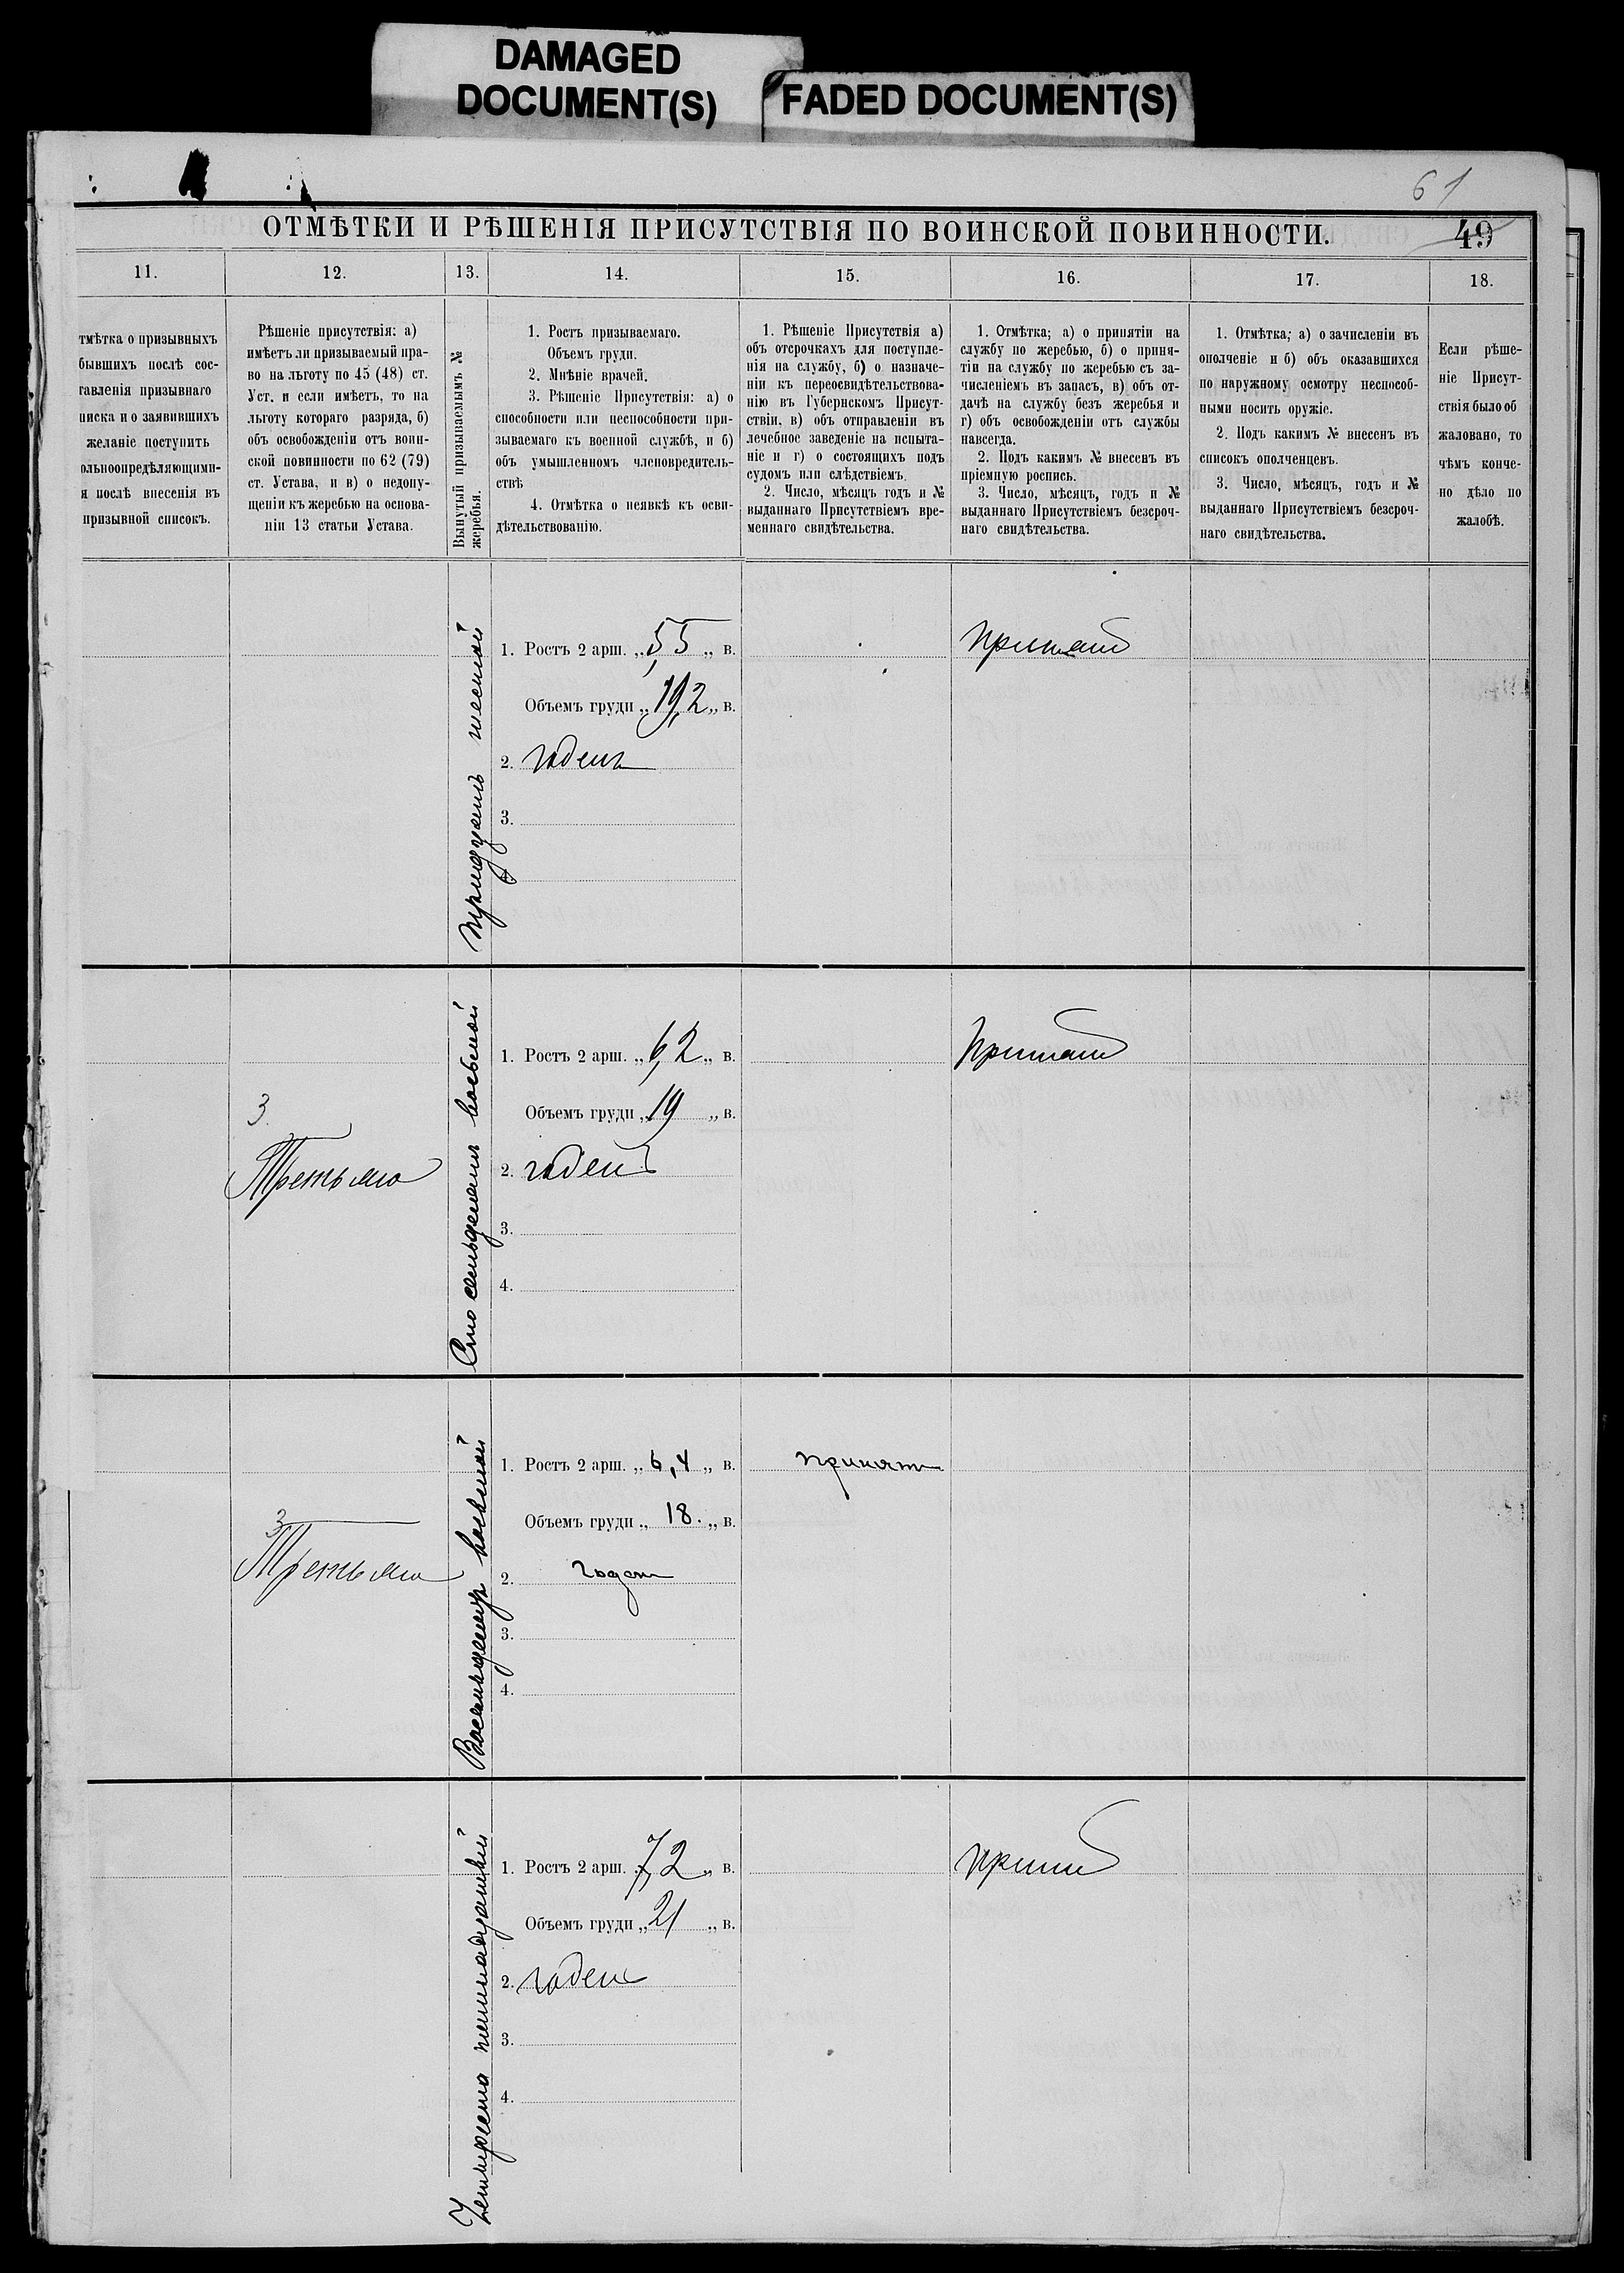 DAMAGED
DOCUMENT(S)
FADED DOCUMENT(S)
61
ОТМѢТКИ И РѢШЕНІЯ ПРИСУТСТВІЯ ПО ВОИНСКОЙ ПОВИННОСТИ.
49
11.
12.
13.
14.
15.
16.
17.
18.
тмѣтка о призывныхъ
бывшихъ послѣ сос-
тавленія призывнаго
писка и о заявившихъ
желаніе поступить
ольноопредѣляющими-
я послѣ внесенія въ
призывной списокъ.
Рѣшеніе присутствія: а)
имѣетъ ли призываемый пра-
во на льготу по 45 (48) ст.
Уст. и если имѣетъ, то на
льготу котораго разряда, б)
объ освобожденіи отъ воин-
ской повинности по 62 (79)
ст. Устава, и в) о недопу-
щеніи къ жеребью на основа-
ніи 13 статьи Устава.
Вынутый призываемымъ №
жеребья.
1. Ростъ призываемаго.
Объемъ груди.
2. Мнѣніе врачей.
3. Рѣшеніе Присутствія: а) о
способности или неспособности при-
зываемаго къ военной службѣ, и б)
объ умышленномъ членовредитель-
ствѣ
4. Отмѣтка о неявкѣ къ осви-
дѣтельствованію.
1. Рѣшеніе Присутствія а)
объ отсрочкахъ для поступле-
нія на службу, б) о назначе-
ніи къ переосвидѣтельствова-
нію въ Губернскомъ Присут-
ствіи, в) объ отправленіи въ
лечебное заведеніе на испыта-
ніе и г) о состоящихъ подъ
судомъ или слѣдствіемъ.
2. Число, мѣсяцъ годъ и №
выданнаго Присутствіемъ вре-
меннаго свидѣтельства.
1. Отмѣтка; а) о принятіи на
службу по жеребью, б) о приня-
тіи на службу по жеребью съ за-
численіемъ въ запасъ, в) объ от-
дачѣ на службу безъ жеребья и
г) объ освобожденіи отъ службы
навсегда.
2. Подъ какимъ № внесенъ въ
пріемную роспись.
3. Число, мѣсяцъ, годъ и №
выданнаго Присутствіемъ безсроч-
наго свидѣтельства.
1. Отмѣтка; а) о зачисленіи въ
ополченіе и б) объ оказавшихся
по наружному осмотру неспособ-
ными носить оружіе.
2. Подъ какимъ № внесенъ въ
списокъ ополченцевъ.
3. Число, мѣсяцъ, годъ и №
выданнаго Присутствіемъ безсроч-
наго свидѣтельства.
Если рѣше-
ніе Присут-
ствія было об
жаловано, то
чѣмъ конче-
но дѣло по
жалобѣ.
тридцать шестой
1. Ростъ 2 арш. „ 5,5 „ в.
Объемъ груди „ 19,2 „ в.
2. годенъ
3.
4
принятъ
3.
Третьяго
Сто семьдесятъ восьмой
1. Ростъ 2 арш. „ 6,2 „ в.
Объемъ груди „ 19 „ в.
2. годенъ
3.
4.
Принятъ
3
Третьяго
Восемьдесятъ восьмой
1. Ростъ 2 арш. „ 6,4 „ в.
Объемъ груди „ 18. „ в.
2. годен
3.
4.
принятъ
Четыреста пятнадцатый
1. Ростъ 2 арш. 7,2 „ в.
Объемъ груди „ 21 „ в.
2. годенъ
3.
4.
принятъ